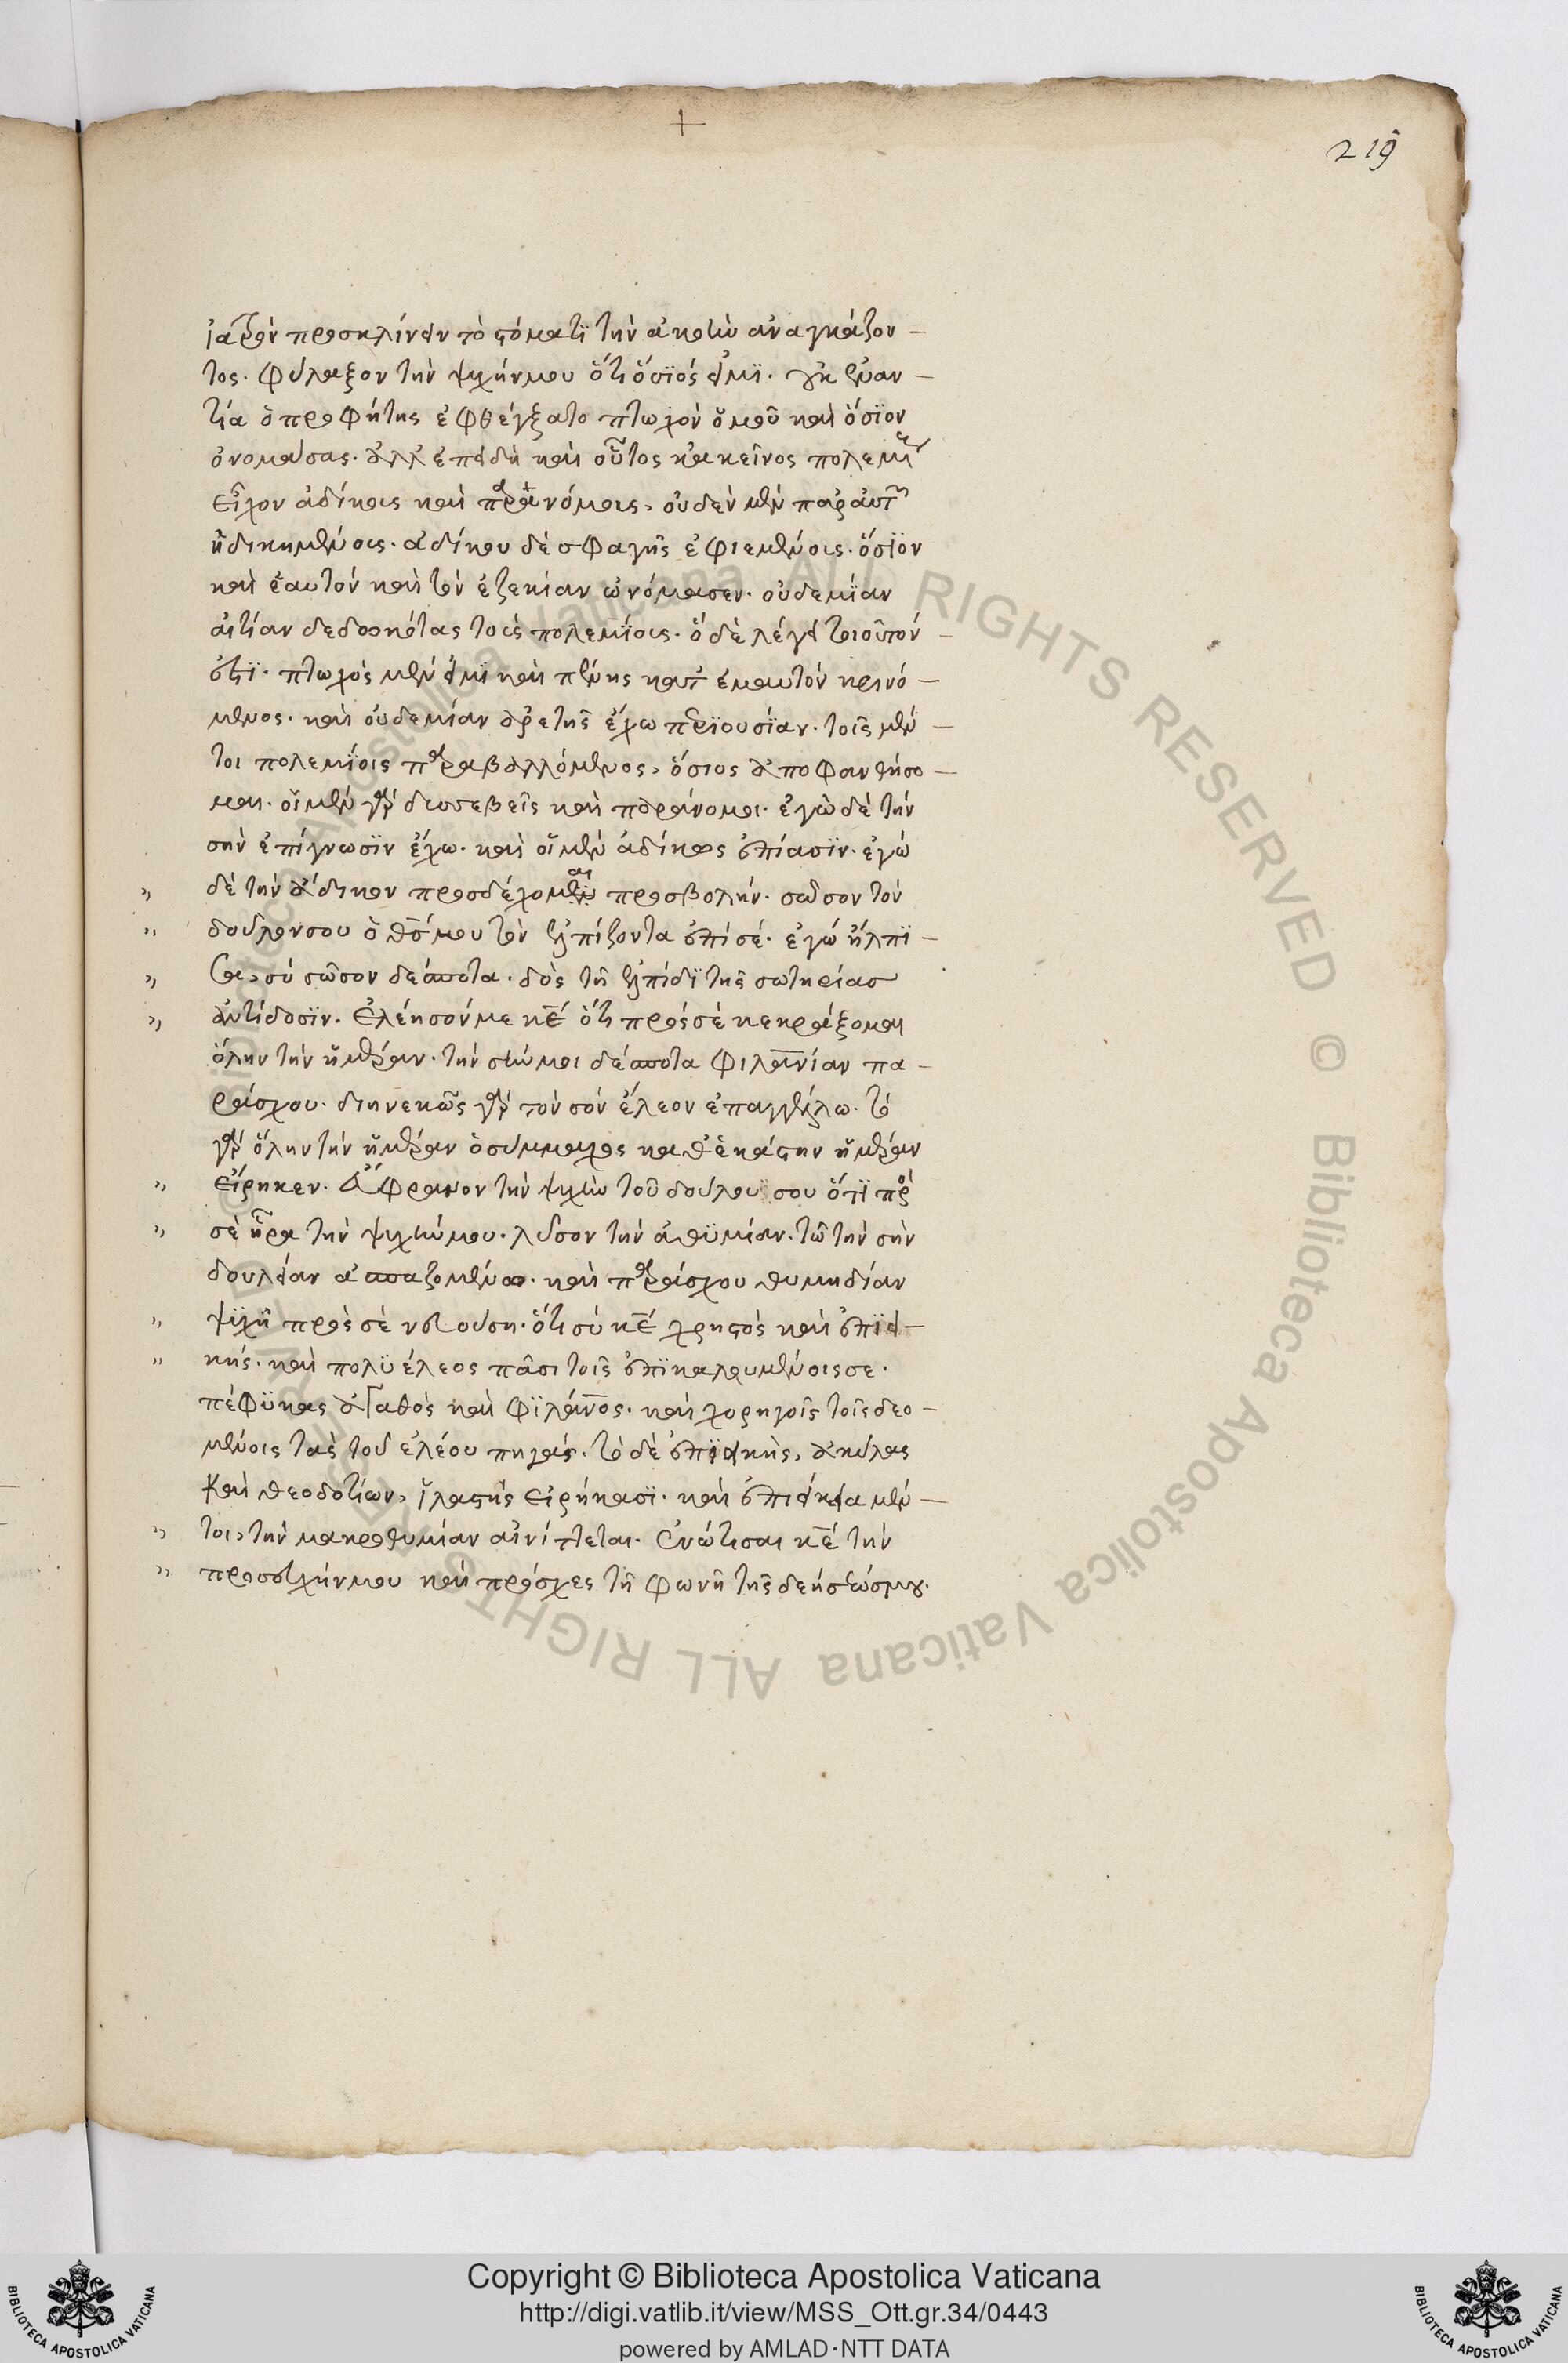 +
219
ἰατρὸν προσκλίνειν τὸ στόματι τὴν ἀκοὴν ἀναγκάζον –
τος. φύλαξον τὴν ψυχήν μου ὅτι ὅσϊός εἰμϊ. οὐκ ἐναν –
τία ὁ προφήτης ἐφθέγξατο πτωχὸν ὁμοῦ καὶ ὅσϊον
ὀνομάσας. ἀλλ' ἐπειδὴ καὶ οὗτος κἀκεῖνος πολεμίοις
εἶχον ἀδίκοις καὶ παρανόμοις, οὐδὲν μὲν παρ' αὐτῶν
ἠδικημένοις. ἀδίκου δὲ σφαγῆς ἐφιεμένοις. ὅσϊον
καὶ ἑαυτὸν καὶ τὸν ἐζεκίαν ὠνόμασεν. οὐδεμΐαν
αἰτίαν δεδωκότας τοῖς πολεμΐοις. ὃ δὲ λέγει τοιοῦτόν –
ἐστϊ. πτωχὸς μὲν εἰμὶ καὶ πένης κατ' ἐμαυτὸν κρινό –
μενος. καὶ οὐδεμίαν ἀρετῆς ἔχω περϊουσίαν. τοῖς μέν –
τοι πολεμίοις παραβαλλόμενος, ὅσιος ἀποφανθήσο –
μαι. οἱ μὲν γὰρ δυσσεβεῖς καὶ παράνομοι. ἐγὼ δὲ τὴν
σὴν ἐπίγνωσϊν ἔχω. καὶ οἱ μὲν ἀδίκως ἐπίασϊν. ἐγὼ
» δὲ τὴν ἄδικον προσδέχομαι προσβολήν. σῶσον τὸν
» δοῦλον σου ὁ θς μου τὸν ἐλπίζοντα ἐπὶ σέ. ἐγὼ ἤλπϊ –
» σα, σὺ σῶσον δέσποτα. δὸς τῇ ἐλπίδϊ τῆς σωτηρίας
» ἀντίδοσϊν. ἐλέησόν με κε ὅτι πρὸς σὲ κεκράξομαι
ὅλην τὴν ἡμέραν. τὴν σήν μοι δέσποτα φιλανίαν πα –
ράσχου. διηνεκῶς γὰρ τὸν σὸν ἔλεον ἐπαγγέλλω. τὸ
γὰρ ὅλην τὴν ἡμέραν ὁ σύμμαχος καθ' ἑκάστην ἡμέραν
» εἴρηκεν. εὔφρανον τὴν ψυχὴν τοῦ δούλου σου ὅτϊ πρὸς
» σὲ ἦρα τὴν ψυχήν μου. λῦσον τὴν ἀθϋμίαν. τῶ τὴν σὴν
δουλείαν ἀσπαζομένω. καὶ παράσχου θυμηδίαν
» ψϋχῇ πρὸς σὲ νευούση. ὅτι σὺ κε χρηστὸς καὶ ἐπϊει –
» κής. καὶ πολϋέλεος πᾶσι τοῖς ἐπϊκαλουμένοις σε.
πέφϋκας ἀγαθὸς καὶ φϊλάνος. καὶ χορηγοῖς τοῖς δεο –
μένοις τὰς τοῦ ἐλέου πηγάς. τὸ δὲ ἐπϊεικὴς, ἀκύλας
καὶ θεοδοτίων, ἱλαστὴς εἰρήκασϊ. καὶ ἐπιείκεια μέν –
» τοι, τὴν μακροθυμίαν αἰνίττεται. ἐνώτισαι κε τὴν
» προσευχήν μου καὶ πρόσχες τῇ φωνῇ τῆς δεήσεώς μου.
BIBLIOTECA APOSTOLICA VATICANA
Copyright © Biblioteca Apostolica Vaticana
http://digi.vatlib.it/view/MSS_Ott.gr.34/0443
powered by AMLAD·NTT DATA
BIBLIOTECA APOSTOLICA VATICANA
© Biblioteca Apostolica Vaticana ALL RIGHTS RESERVED © Biblioteca Apostolica Vaticana ALL RIGHTS RESERVED